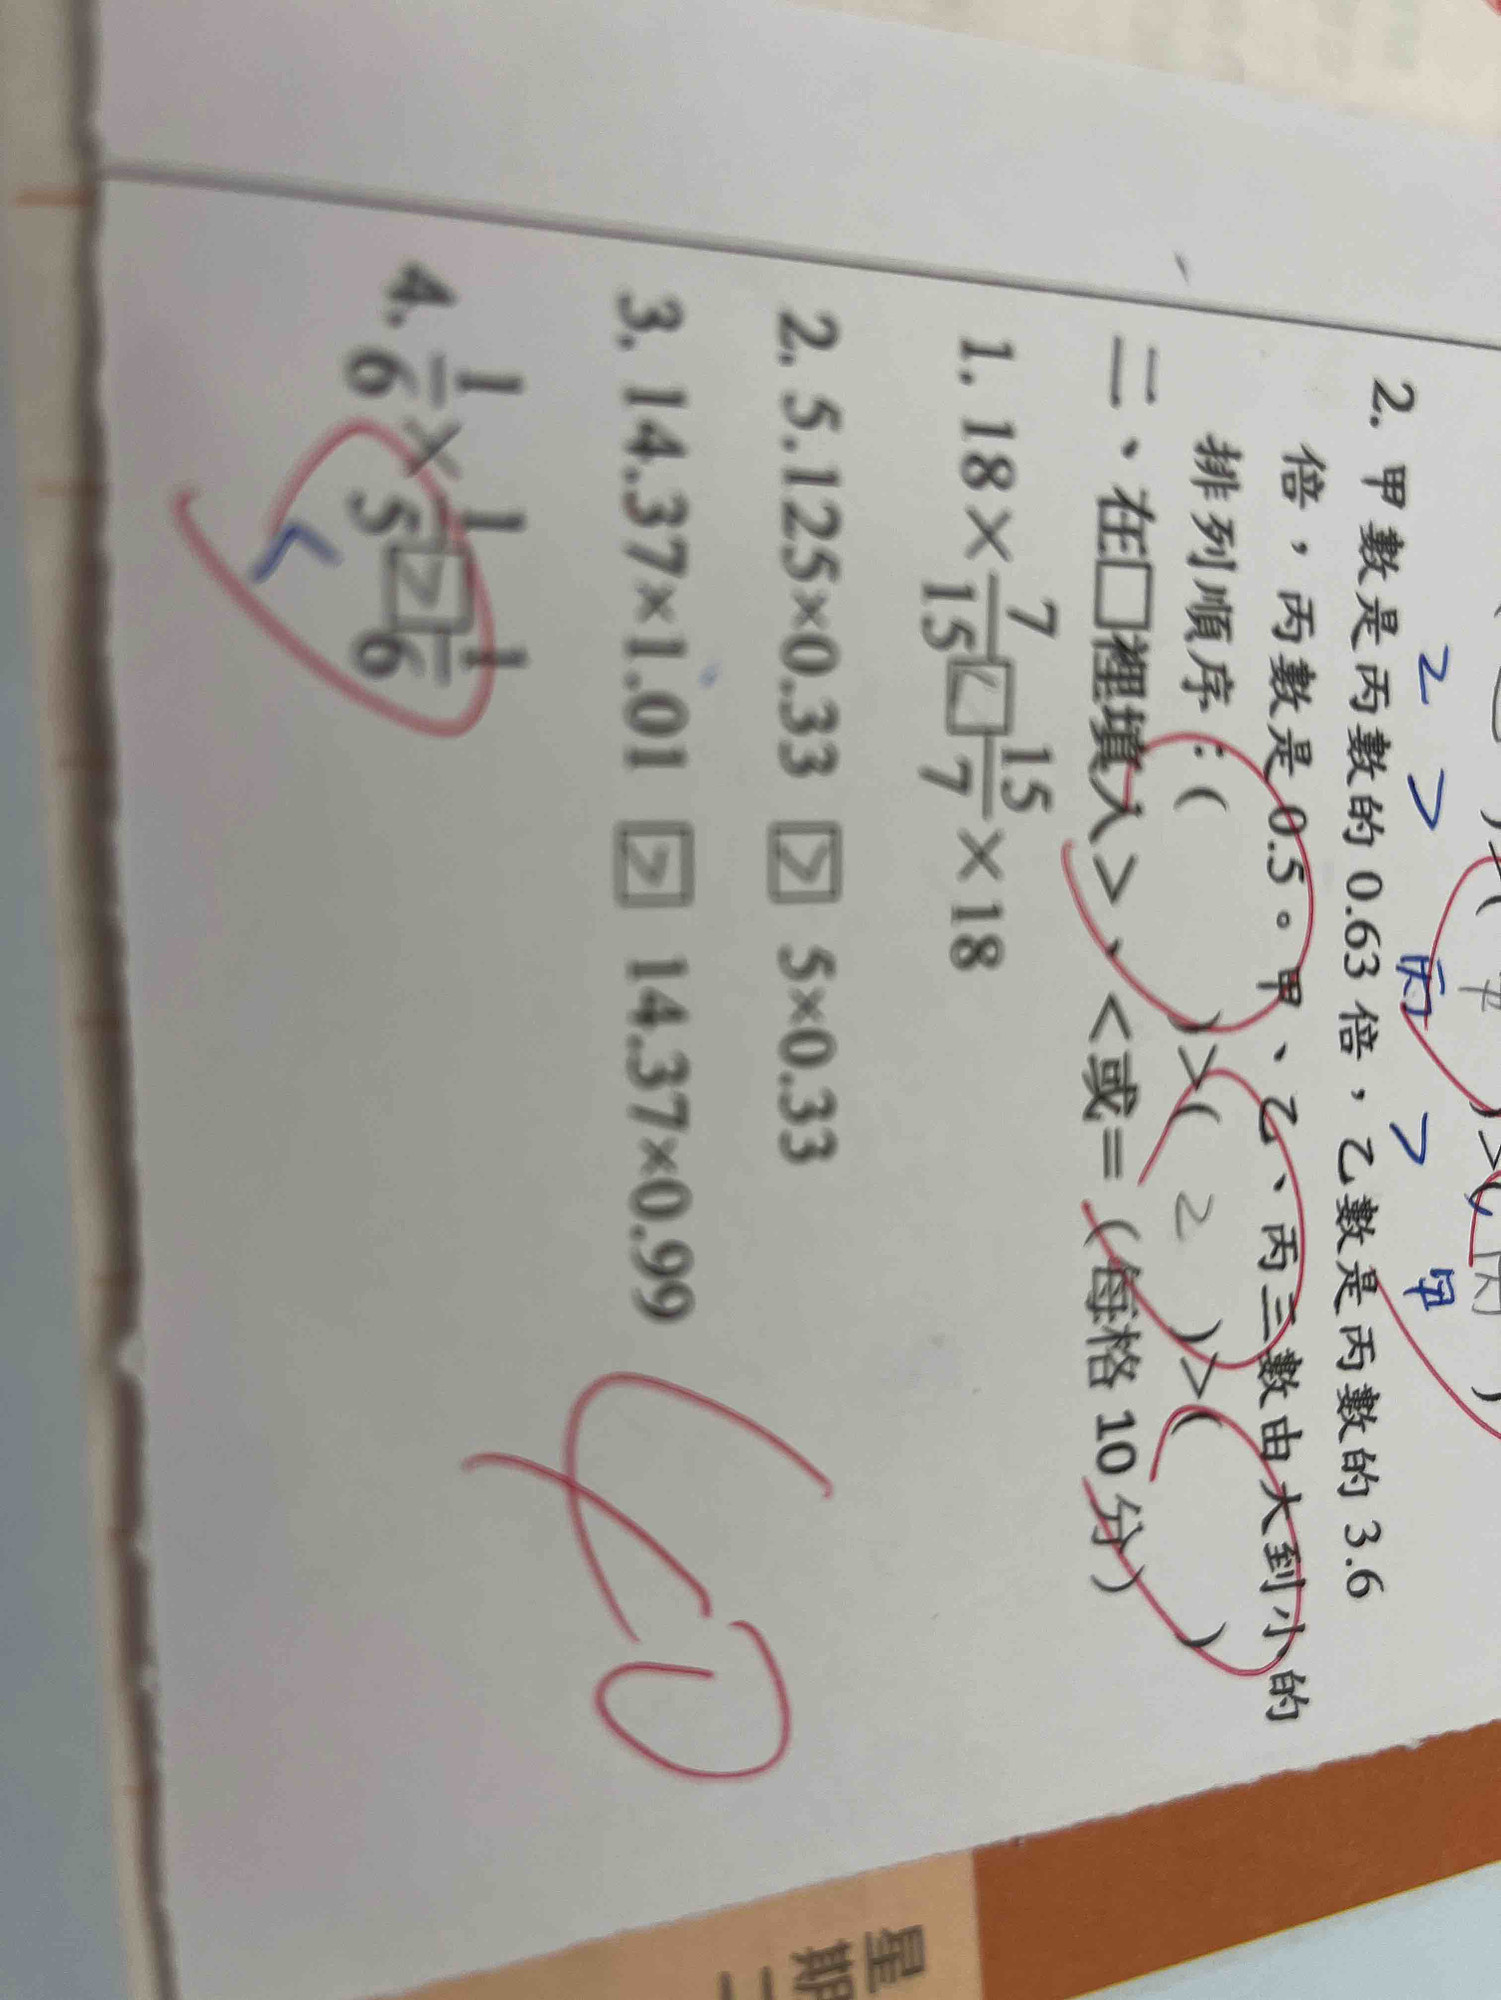 乙 > 丙 > 甲
2. 甲數是丙數的 0.63 倍，乙數是丙數的 3.6
倍，丙數是 0.5。甲、乙、丙三數由大到小的
排列順序：( )>( 乙 )>( )
二、在□裡填入>、<或=（每格 10 分）
1. 18×7/15 < 15/7×18
2. 5.125×0.33 > 5×0.33
3. 14.37×1.01 > 14.37×0.99
4. 1/6×1/5 > 1/6
<
60
星期二